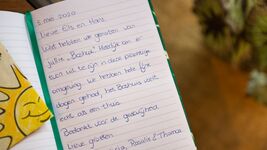 3 mei 2020
Lieve Els en Hans,
Wat hebben we genoten van
jullie "Boshus" Heerlijk om er
even uit te zijn in deze prachtige
omgeving. We hebben hele fijne
dagen gehad, het Boshuus voelt
echt als een thuis.
Bedankt voor de gastvrijheid
Lieve groeten
Rosalie & Thomas